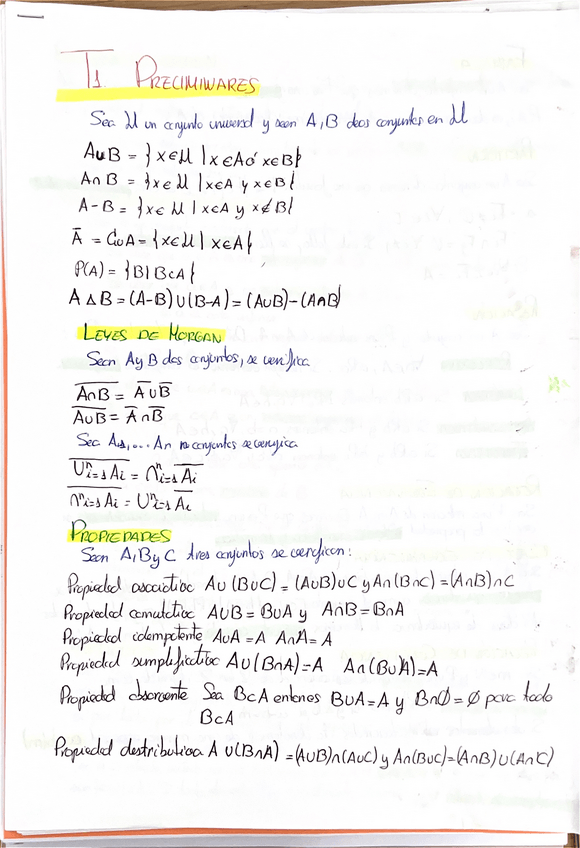 T1 PRELIMINARES
Sea U un conjunto universal y sean A, B dos conjuntos en U
A∪B = {x∈U | x∈A ó x∈B}
A∩B = {x∈U | x∈A y x∈B}
A-B = {x∈U | x∈A y x∉B}
Ā = C∪A = {x∈U | x∈A}
P(A) = {B | B⊂A}
A△B = (A-B)∪(B-A) = (A∪B)-(A∩B)
LEYES DE MORGAN
Sean A y B dos conjuntos, se verifica
\overline{A∩B} = \overline{A}∪\overline{B}
\overline{A∪B} = \overline{A}∩\overline{B}
Sea A1,... An n conjuntos se verifica
\overline{∪ⁿᵢ₌₁ Ai} = ∩ⁿᵢ₌₁ \overline{Ai}
\overline{∩ⁿᵢ₌₁ Ai} = ∪ⁿᵢ₌₁ \overline{Ai}
PROPIEDADES
Sean A, B y C tres conjuntos se verifican:
Propiedad asociativa A∪(B∪C) = (A∪B)∪C y A∩(B∩C) = (A∩B)∩C
Propiedad conmutativa A∪B = B∪A y A∩B = B∩A
Propiedad idempotente A∪A = A A∩A = A
Propiedad simplificativa A∪(B∩A) = A A∩(B∪A) = A
Propiedad absorvente Sea B⊂A entonces B∪A = A y B∩∅ = ∅ para todo
B⊂A
Propiedad destributiva A∪(B∩A) = (A∪B)∩(A∪C) y A∩(B∪C) = (A∩B)∪(A∩C)